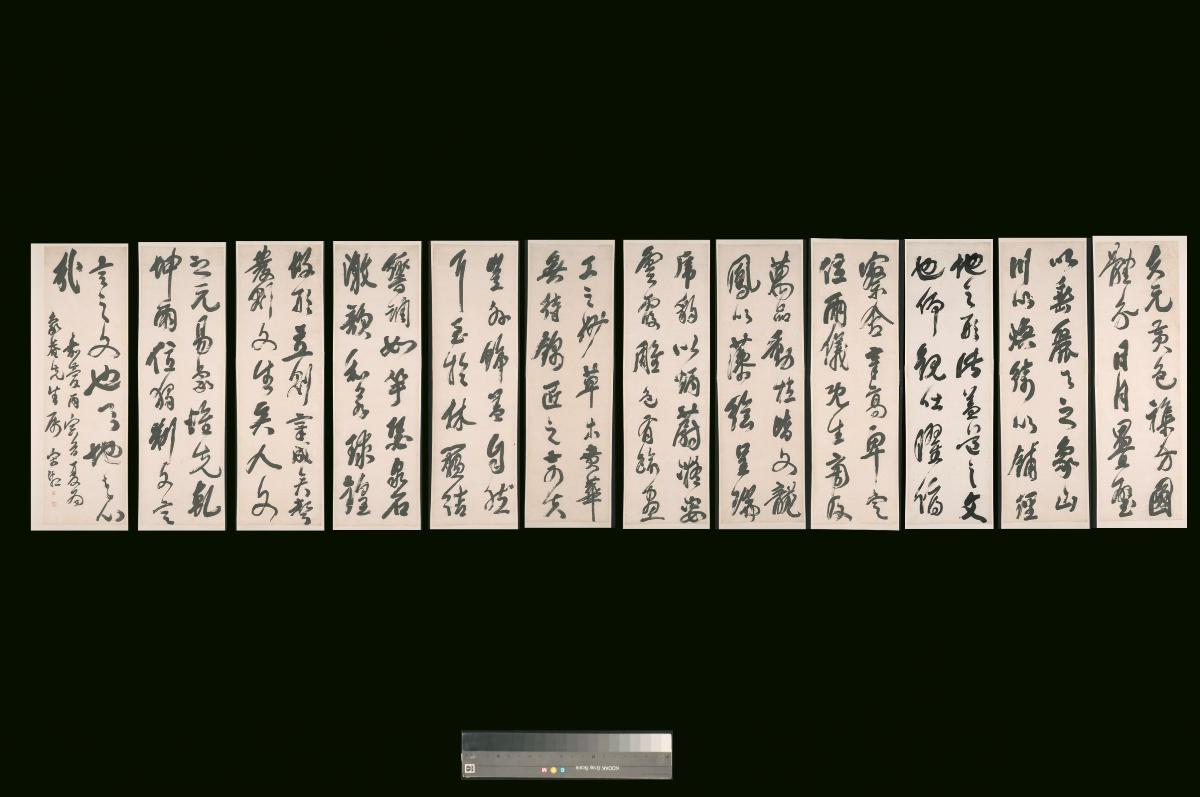 夫元黃色雜方圓
體分日月疊璧
以垂麗天之象山
川以煥綺以鋪經
地之形此蓋道之文
也仰觀吐曜俯
察含章高卑定
位兩儀既生旁及
萬品動植皆文龍
鳳以藻繪呈瑞
虎豹以炳蔚凝姿
雲霞雕色有踰畫
工之妙草木賁華
無待錦匠之奇夫
豈外飾蓋自然
耳至於林籟結
響調如竽瑟泉石
激韻和若球鍠
故形立則章成矣聲
發則文生矣人文
之元易象惟先乾
坤兩位獨制文言
言之文也天地之心
哉
嘉慶丙寅首夏為
先生屬 宋湘
KODAK Gray Scale